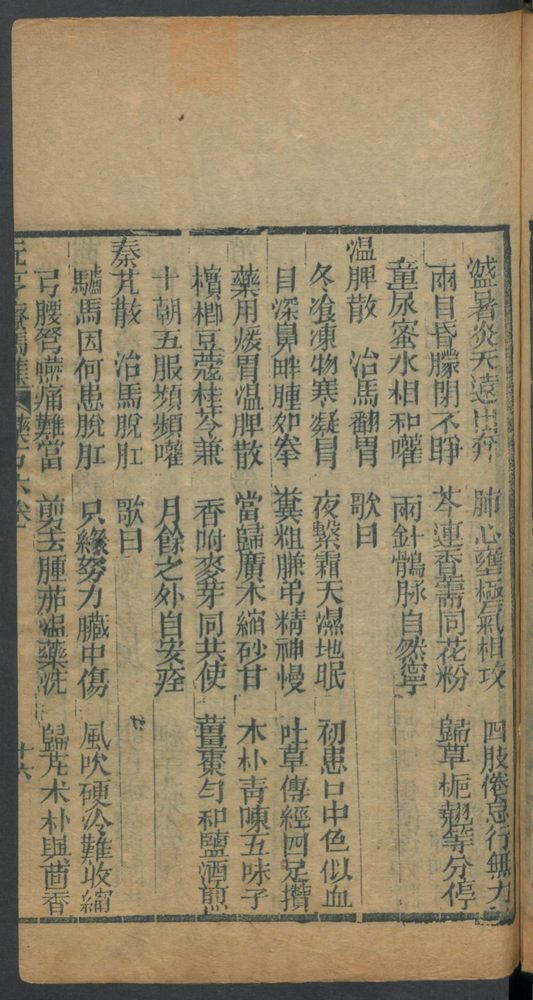 盛暑炎天遠出奔　肺心壅極氣相攻　四肢倦怠行無力
兩目昏朦閉不睜　芩連香薷同花粉　歸草梔翹等分停
童尿蜜水相和嚾　兩針鶻脉自然寧
温脾散　治馬翻胃　歌曰
冬飡凍物寒凝胃　夜繫霜天濕地眠　初患口中色似血
目深鼻畔腫如拳　糞粗膁弔精神慢　吐草傳經四足攢
藥用煖胃温脾散　當歸厲朮縮砂甘　木朴靑陳五味子
檳榔豆蔻桂芩兼　香附麥芽同共使　薑棗勻和鹽酒煎
十朝五服頻頻嚾　月餘之外自安痊
秦艽散　治馬脫肛　歌曰
驢馬因何患脫肛　只緣努力臟中傷　風吹硬冷難收縮
弓腰弩𦡱痛難當　剪去腫茄温藥洗　歸芃朮朴與茴香
元亨療馬集　藥方六卷　十六